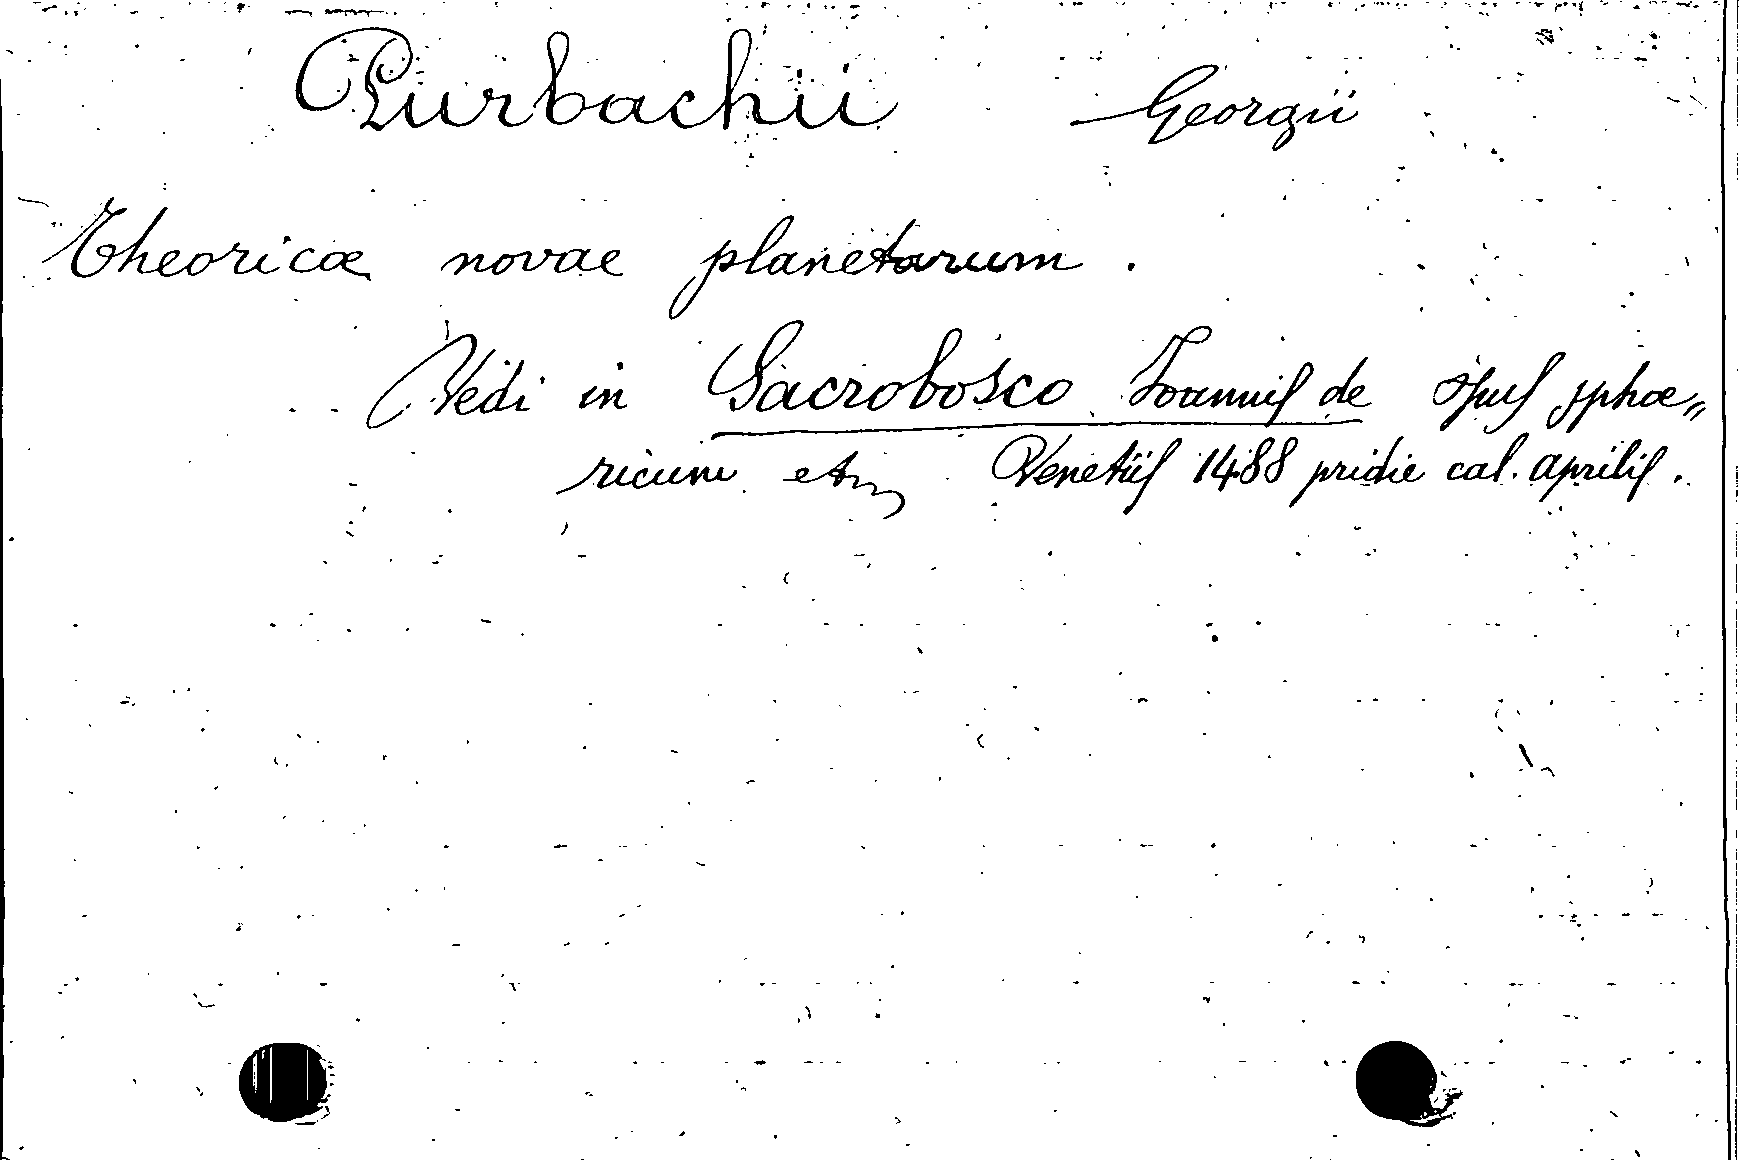 Purbachii Georgii
Theoricæ novae planetarum.
Vedi in Sacrobosco Joannis de Opus sphæ„
ricum etc Venetiis 1488 pridie cal. aprilis.